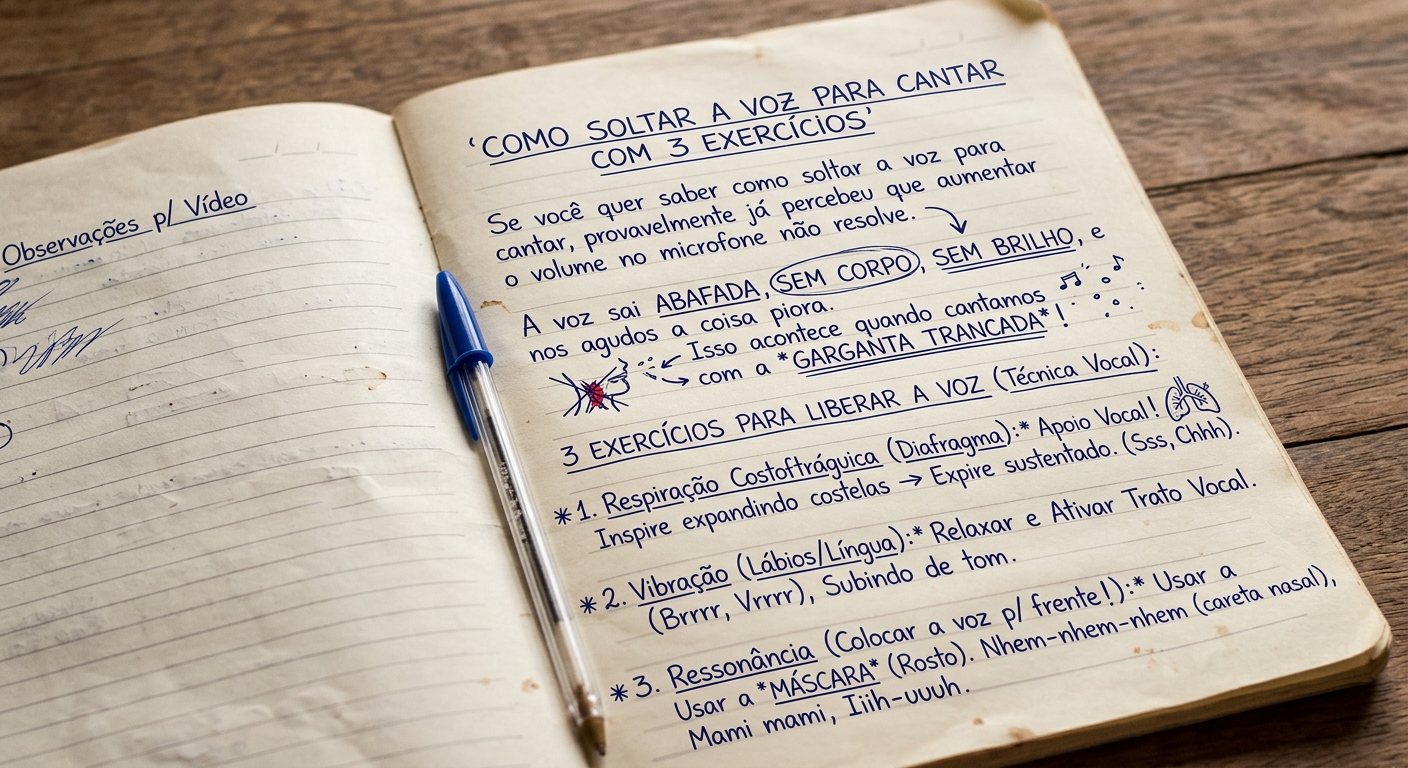 Observações p/ Vídeo
'COMO SOLTAR A VOZ PARA CANTAR
COM 3 EXERCÍCIOS'
Se você quer saber como soltar a voz para
cantar, provavelmente já percebeu que aumentar
o volume no microfone não resolve.
A voz sai ABAFADA, SEM CORPO, SEM BRILHO, e
nos agudos a coisa piora.
Isso acontece quando cantamos
com a *GARGANTA TRANCADA*!
3 EXERCÍCIOS PARA LIBERAR A VOZ (Técnica Vocal):
*1. Respiração Costoftráguica (Diafragma):* Apoio Vocal!
Inspire expandindo costelas → Expire sustentado. (Sss, Chhh).
*2. Vibração (Lábios/Língua):* Relaxar e Ativar Trato Vocal.
(Brrrr, Vrrrr), Subindo de tom.
*3. Ressonância (Colocar a voz p/ frente!):* Usar a
Usar a *MÁSCARA* (Rosto). Nhem-nhem-nhem (careta nasal),
Mami mami, Iiih-uuuh.